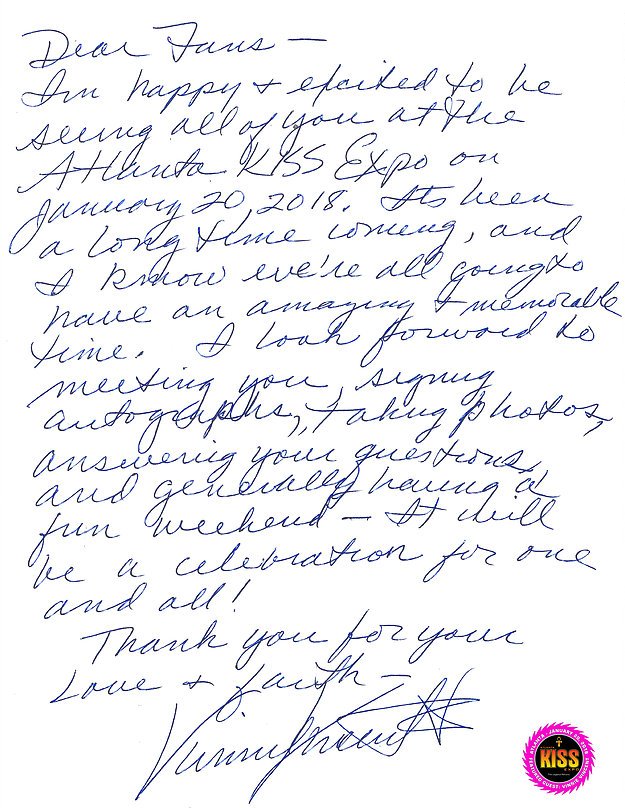 Dear Fans —
Im happy + excited to be
seeing all of you at the
Atlanta KISS Expo on
January 20, 2018. Its been
a long time coming, and
I know we're all going to
have an amazing + memorable
time. I look forward to
meeting you, signing
autographs, taking photos,
answering your questions,
and generally having a
fun weekend — It will
be a celebration for one
and all!
Thank you for your
Love + faith —
Vinnie Vincent
ATLANTA JANUARY 20, 2018
KISS
EXPO
FEATURED GUEST: VINNIE VINCENT